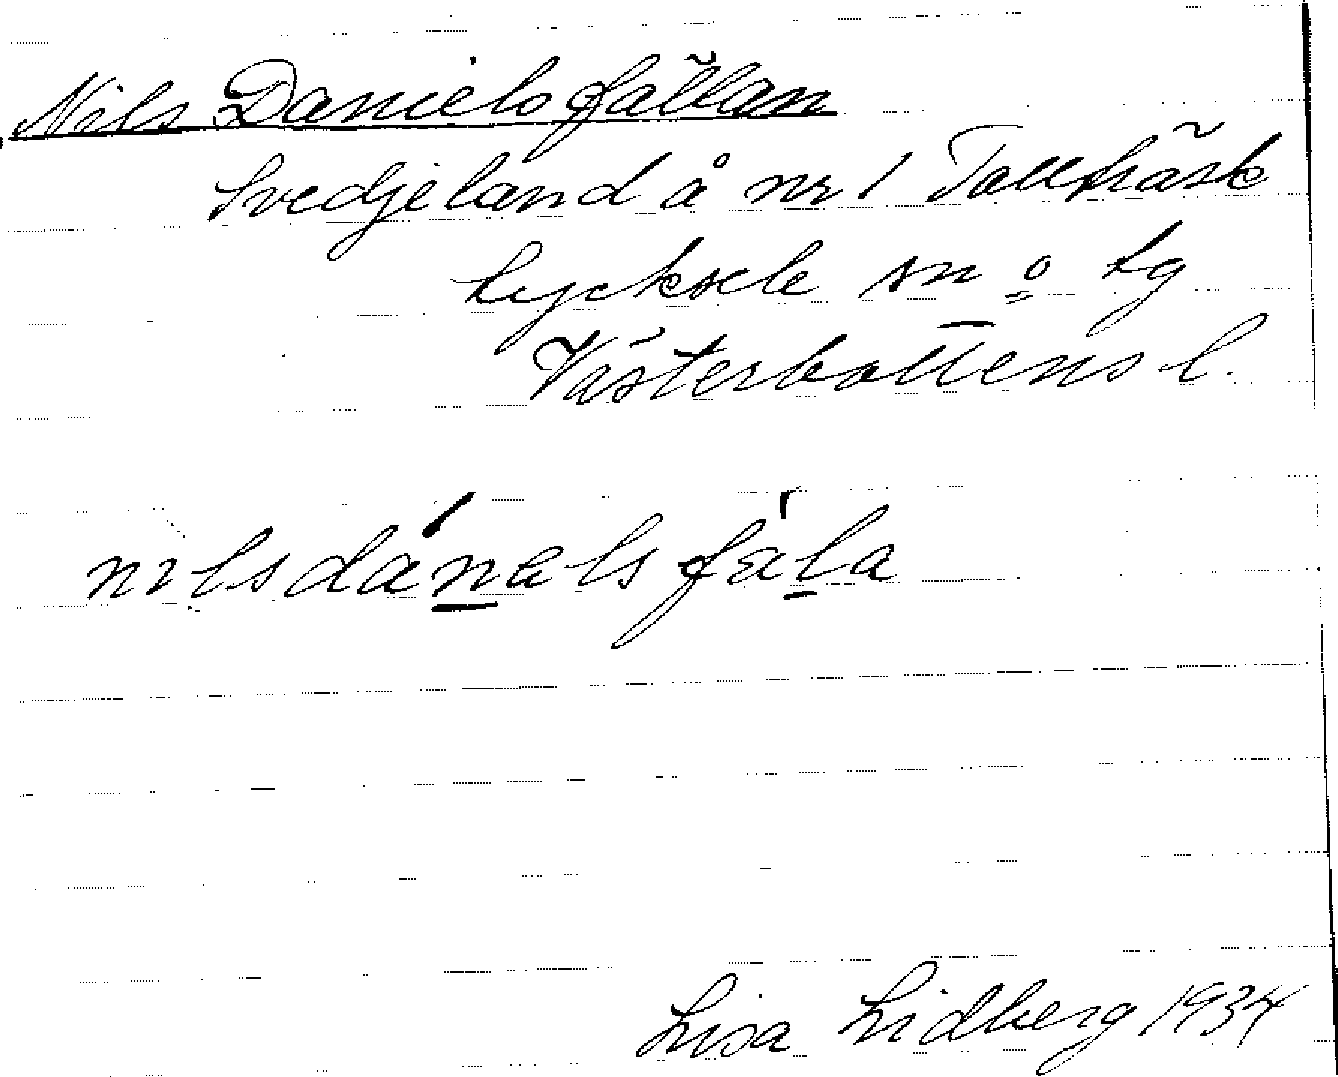 Nils Danielsfällan
Svedjeland å nr 1 Tallträsk
Lycksele sn o tg
Västerbottens l.
nılsdánɛls fäla
Lisa Lidberg 1934